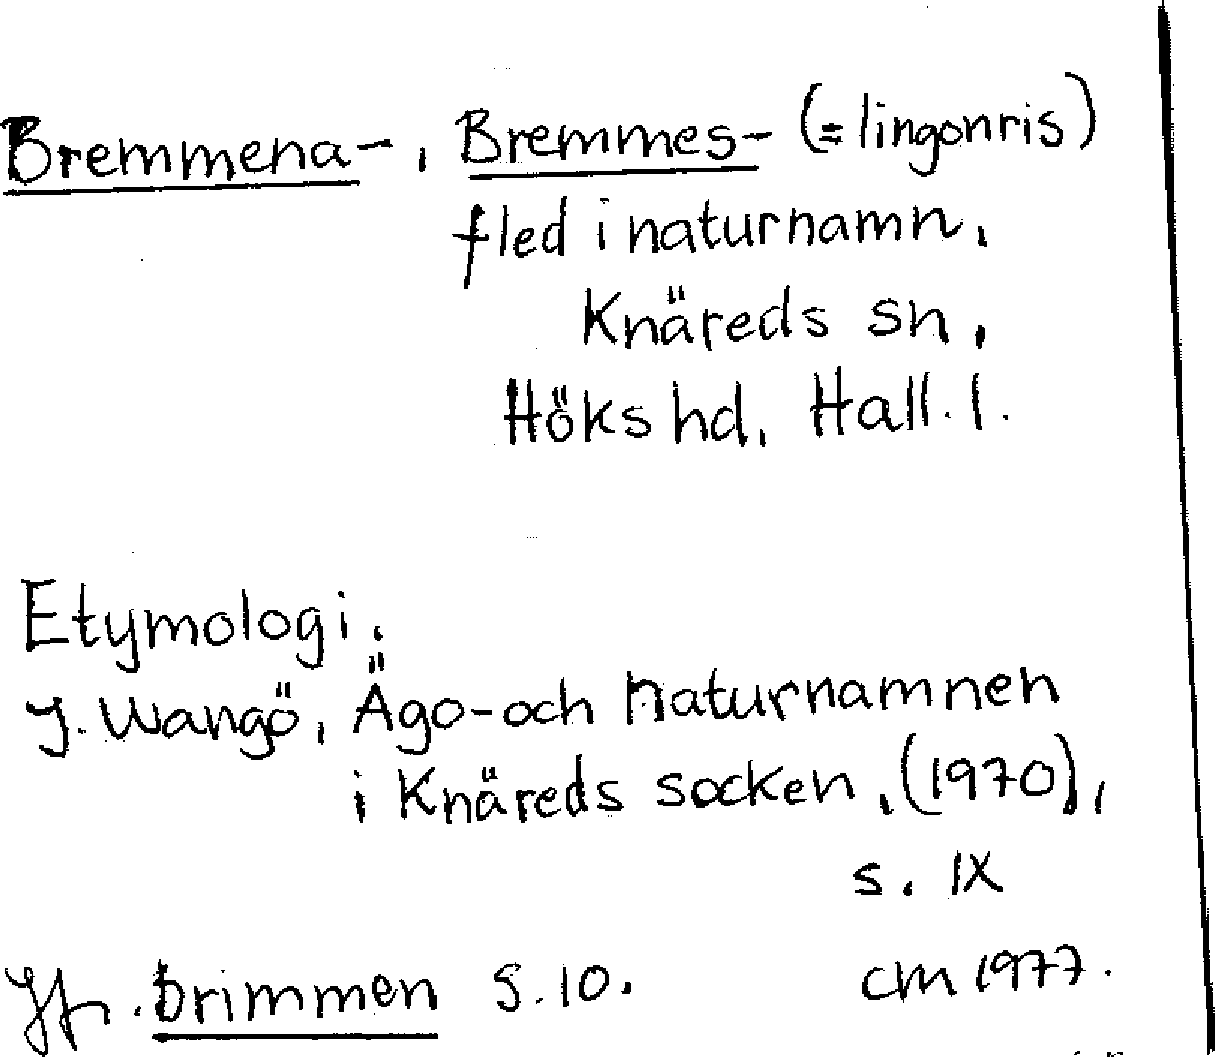 Bremmena-, Bremmes- (= lingonris)
fled i naturnamn,
Knäreds sn,
Höks hd, Hall. l.
Etymologi.
J. Wangö, Ägo- och naturnamnen
i Knäreds socken, (1970),
s. IX
Jfr. brimmen s. 10.
cm 1977.